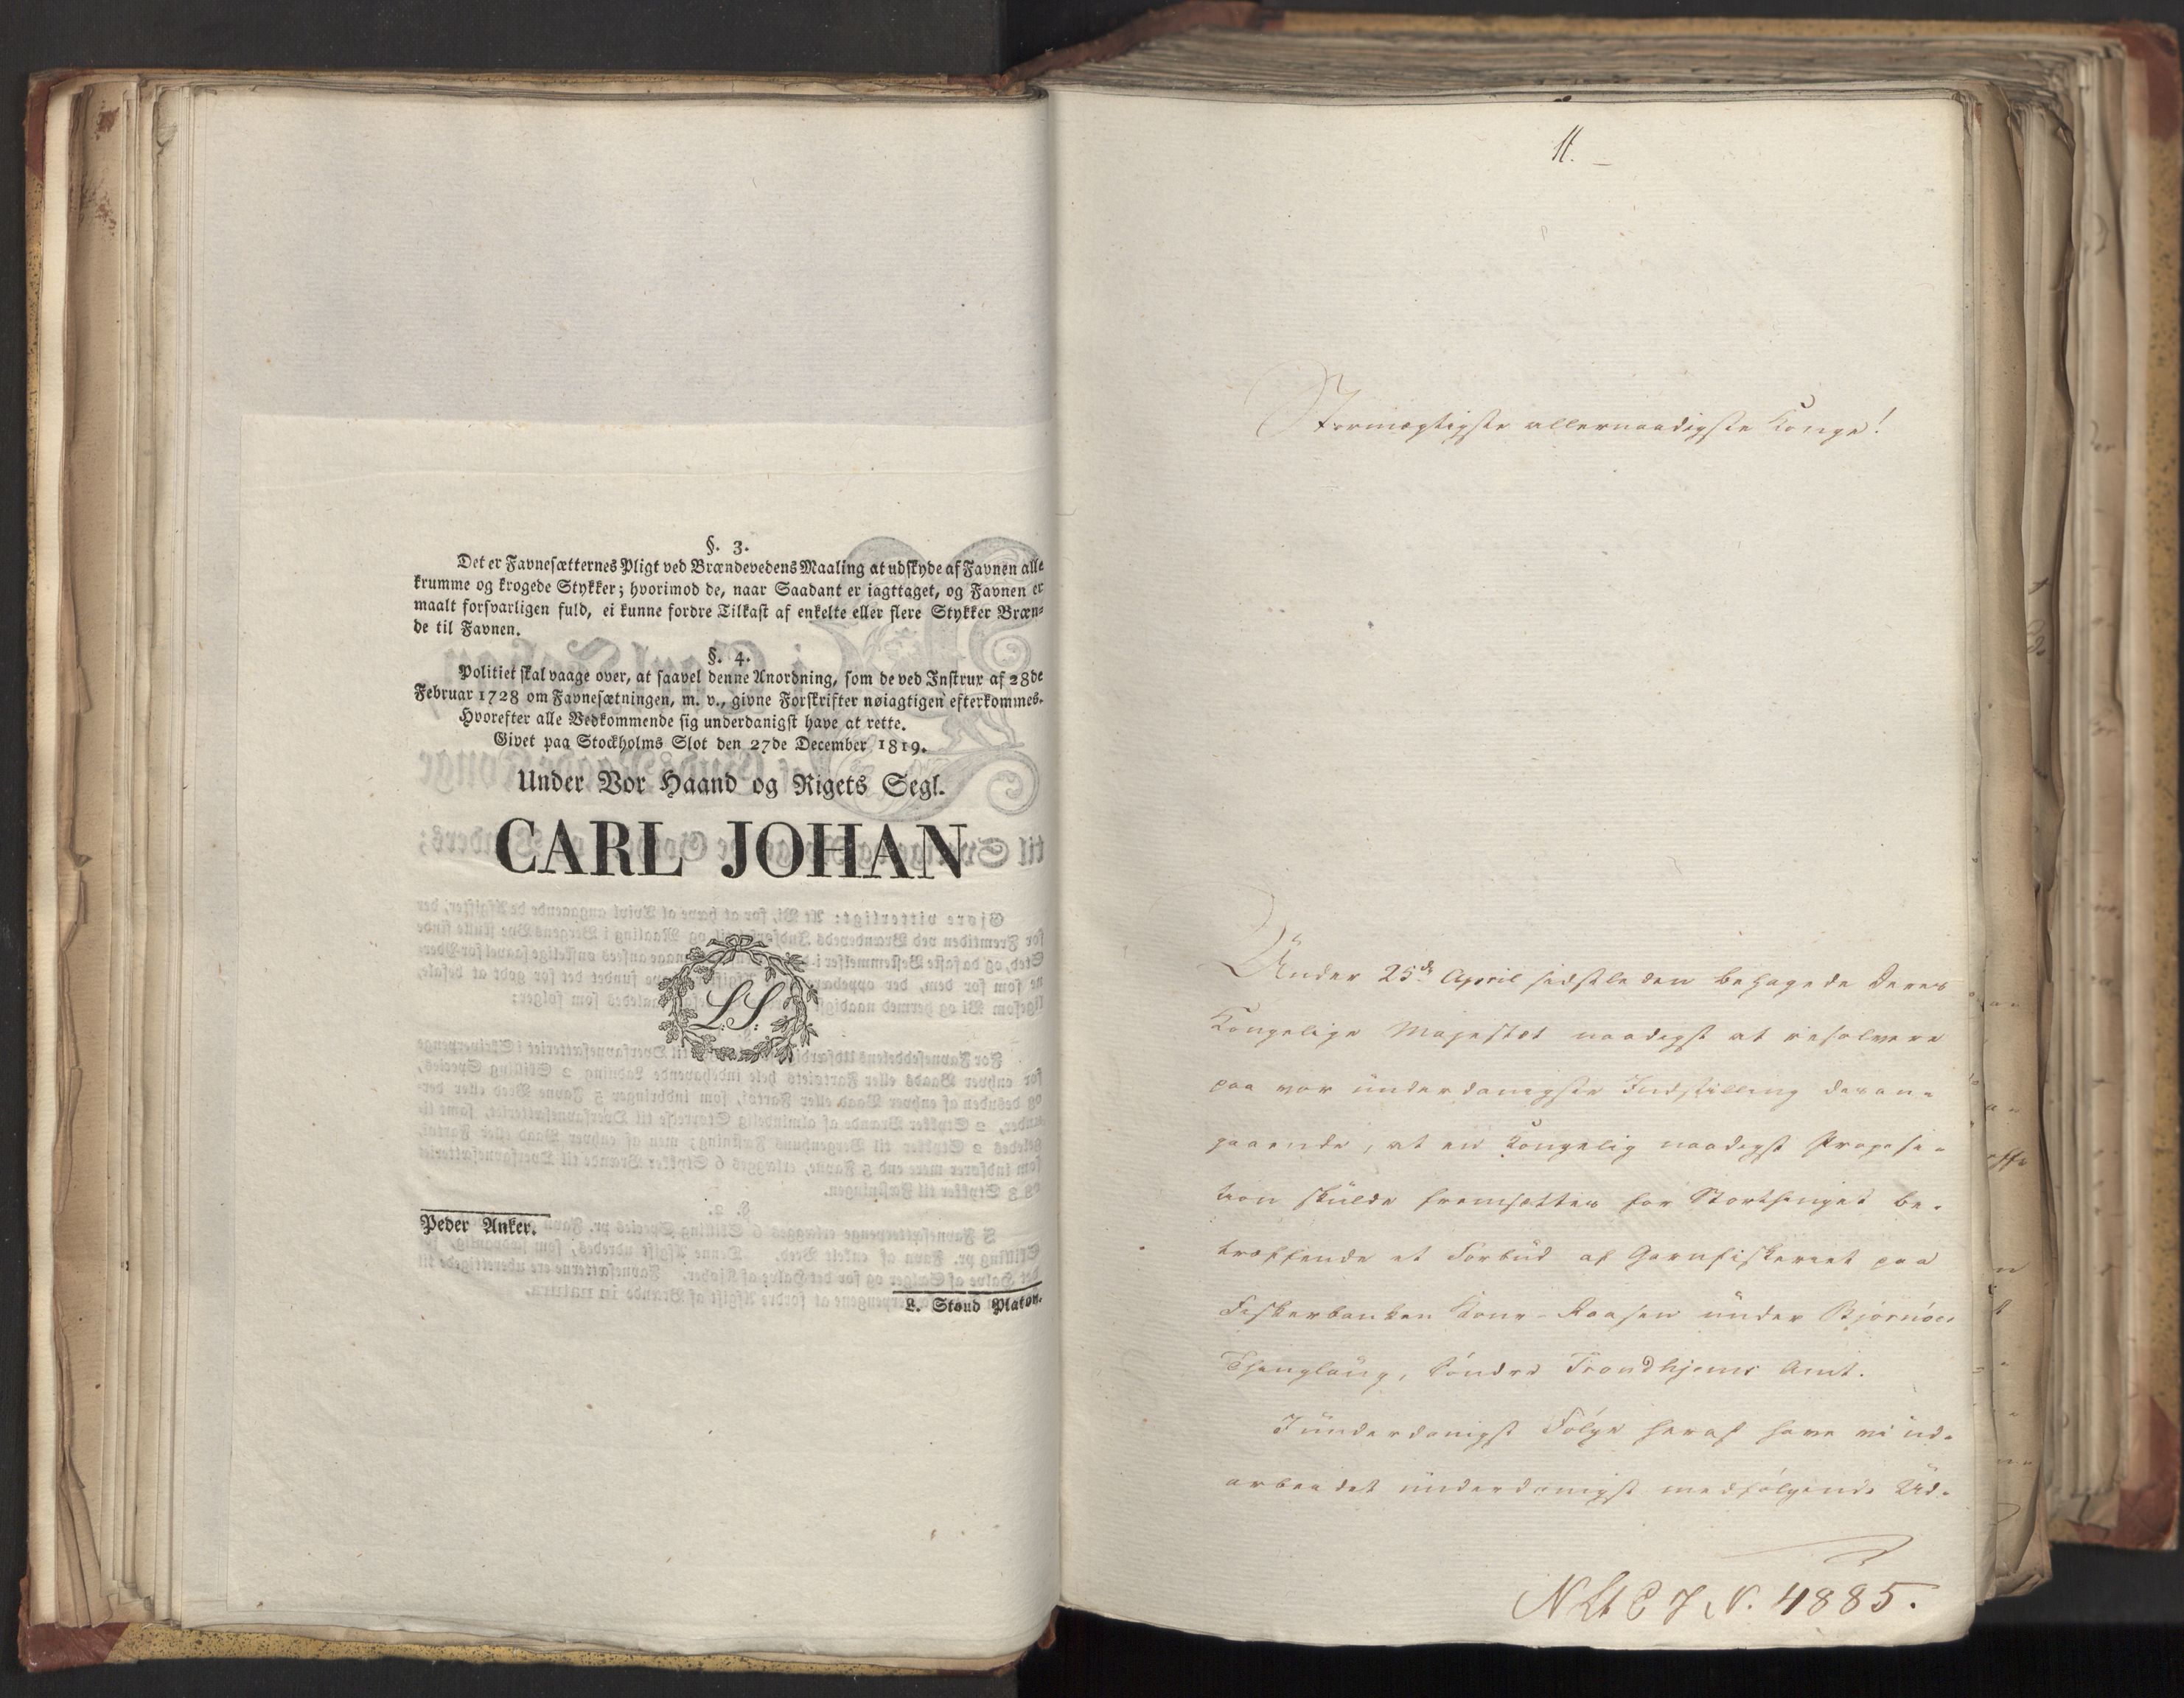 §. 3.
Det er Favnesætternes Pligt ved Brændevedens Maaling at udskyde af Favnen alle
krumme og krogede Stykker; hvorimod de, naar Saadant er iagttaget, og Favnen er
maalt forsvarligen fuld, ei kunne fordre Tilkast af enkelte eller flere Stykker Bræn-
de til Favnen.
§. 4.
Politiet skal vaage over, at saavel denne Anordning, som de ved Instrux af 28de
Februar 1728 om Favnesætningen, m. v., givne Forskrifter nøiagtigen efterkommes.
Hvorefter alle Vedkommende sig underdanigst have at rette.
Givet paa Stockholms Slot den 27de December 1819.
Under Vor Haand og Rigets Segl.
CARL JOHAN
L. S.
Peder Anker.
L. Stoud Platou.
11.
Stormægtigste allernaadigste Konge!
Under 25de April sidstleden behagede Deres
Kongelige Majestæt naadigst at resolvere
paa vor underdanigste Indstilling desan-
gaaende, at en Kongelig naadigst Proposi-
tion skulde fremsættes for Storthinget be-
træffende et Forbud af Garnfiskeriet paa
Fiskerbanken under Bjørnøer
Thinglaug, Søndre Trondhjems Amt.
I underdanigst Følge heraf have vi ud-
arbeidet underdanigst medfølgende Ud-
N. 4885.